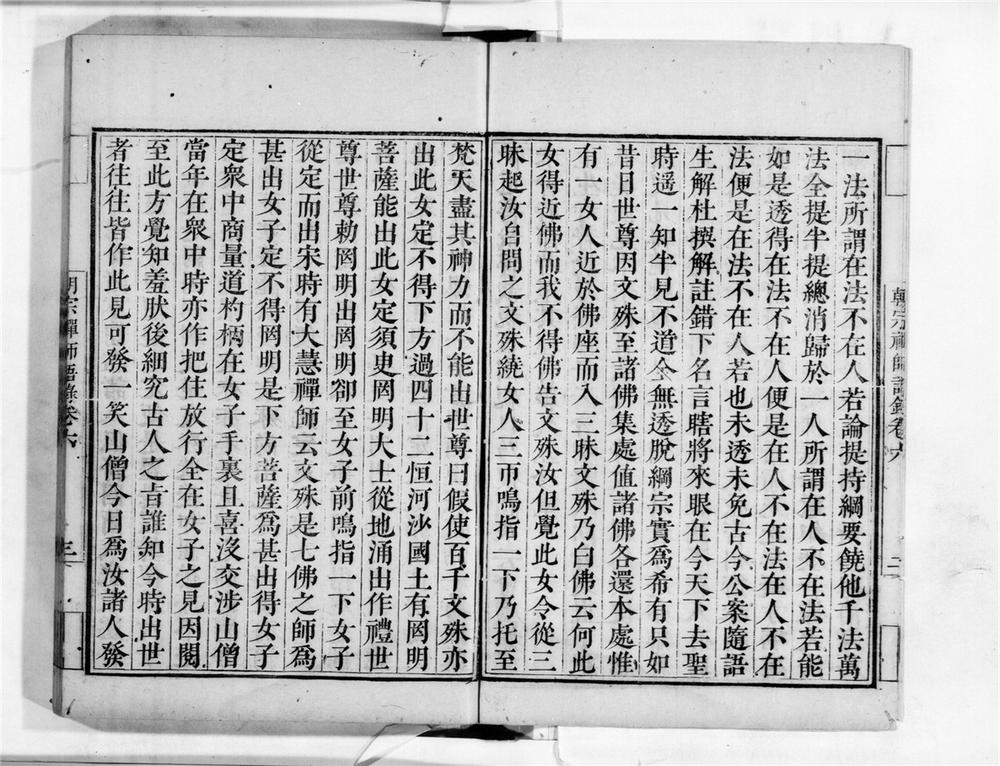 朝宗禪師語錄卷六
二
一法所謂在法不在人若論提持綱要饒他千法萬
法全提半提總消歸於一人所謂在人不在法若能
如是透得在法不在人便是在人不在法在人不在
法便是在法不在人若也未透未免古今公案隨語
生解杜撰解註錯下名言瞎將來眼在今天下去聖
時遥一知半見不道全無透脫綱宗實爲希有只如
昔日世尊因文殊至諸佛集處值諸佛各還本處惟
有一女人近於佛座而入三昧文殊乃白佛云何此
女得近佛而我不得佛告文殊汝但覺此女令從三
昧起汝自問之文殊繞女人三帀鳴指一下乃托至
梵天盡其神力而不能出世尊曰假使百千文殊亦
出此女定不得下方過四十二恒河沙國土有罔明
菩薩能出此女定須臾罔明大士從地涌出作禮世
尊世尊勅罔明出罔明卻至女子前鳴指一下女子
從定而出宋時有大慧禪師云文殊是七佛之師爲
甚出女子定不得罔明是下方菩薩爲甚出得女子
定衆中商量道杓柄在女子手裏且喜沒交涉山僧
當年在衆中時亦作把住放行全在女子之見因閱
至此方覺知羞肰後細究古人之旨誰知今時出世
者往往皆作此見可發一笑山僧今日爲汝諸人發
朝宗禪師語錄卷六
三